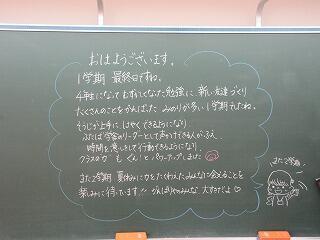 おはようございます。
1学期 最終日ですね。
4年生になって むずかしくなった勉強に 新しい友達づくり
たくさんのことをがんばった みのりが多い1学期でしたね。
そうじが上手に はやくできるようになり
ふたば学舎のリーダーとして声かけできる人がふえ
時間を意しきして行動できるようになり
クラスの も ぐん!とパワーアップしました
また2学期 夏休みにひとまわり 大きくなったみんなに会えることを
楽しみに待っています!! がんばりやのみんな 大すきだよ♡
また2学期